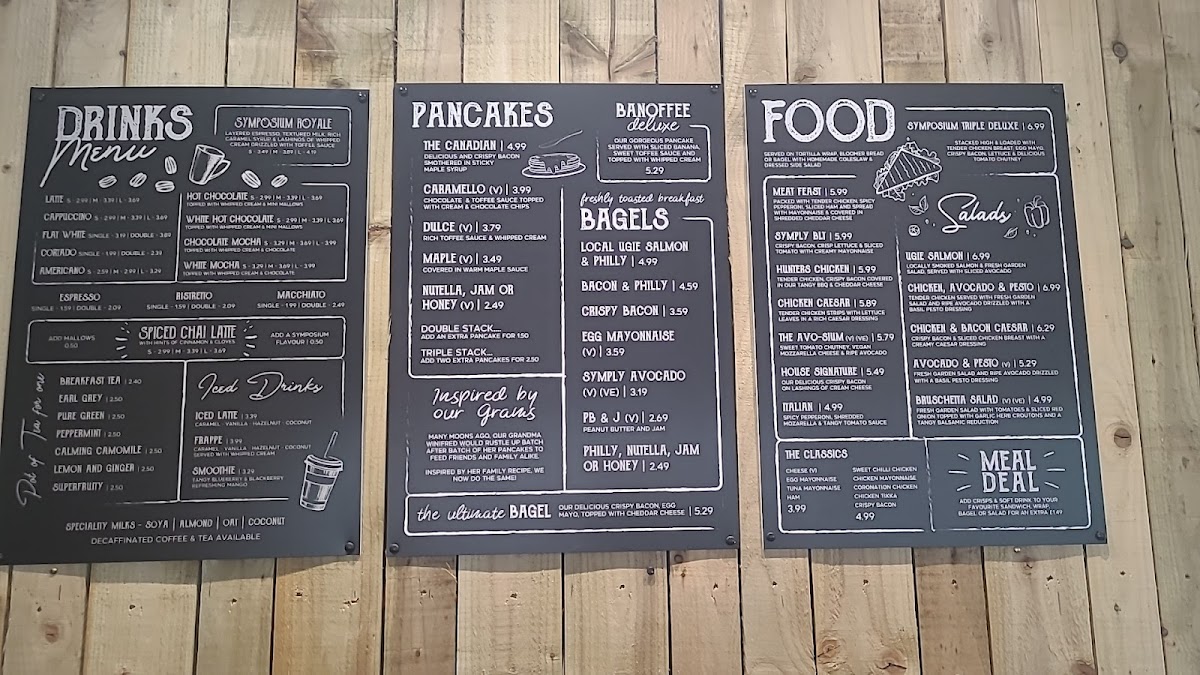 DRINKS
Menu
SYMPOSIUM ROYALE
LAYERED ESPRESSO, TEXTURED MILK, RICH
CARAMEL SYRUP & LASHINGS OF WHIPPED
CREAM DRIZZLED WITH TOFFEE SAUCE
S - 3.49 | M - 3.89 | L - 4.19
LATTE S - 2.99 | M - 3.39 | L - 3.69
CAPPUCCINO S - 2.99 | M - 3.39 | L - 3.69
FLAT WHITE SINGLE - 3.19 | DOUBLE - 3.89
CORTADO SINGLE - 1.99 | DOUBLE - 2.39
AMERICANO S - 2.59 | M - 2.99 | L - 3.29
HOT CHOCOLATE S - 2.99 | M - 3.39 | L - 3.69
TOPPED WITH WHIPPED CREAM & MINI MALLOWS
WHITE HOT CHOCOLATE S - 2.99 | M - 3.39 | L - 3.69
TOPPED WITH WHIPPED CREAM & MINI MALLOWS
CHOCOLATE MOCHA S - 3.29 | M - 3.69 | L - 3.99
TOPPED WITH WHIPPED CREAM & CHOCOLATE
WHITE MOCHA S - 3.29 | M - 3.69 | L - 3.99
TOPPED WITH WHIPPED CREAM & CHOCOLATE
ESPRESSO
SINGLE - 1.59 | DOUBLE - 2.09
RISTRETTO
SINGLE - 1.59 | DOUBLE - 2.09
MACCHIATO
SINGLE - 1.99 | DOUBLE - 2.49
ADD MALLOWS
0.50
SPICED CHAI LATTE
WITH HINTS OF CINNAMON & CLOVES
S - 2.99 | M - 3.39 | L - 3.69
ADD A SYMPOSIUM
FLAVOUR | 0.50
Pot of Tea for one
BREAKFAST TEA | 2.40
EARL GREY | 2.50
PURE GREEN | 2.50
PEPPERMINT | 2.50
CALMING CAMOMILE | 2.50
LEMON AND GINGER | 2.50
SUPERFRUITY | 2.50
Iced Drinks
ICED LATTE | 3.39
CARAMEL - VANILLA - HAZELNUT - COCONUT
FRAPPE | 3.99
CARAMEL - VANILLA - HAZELNUT - COCONUT
SERVED WITH WHIPPED CREAM
SMOOTHIE | 3.29
TANGY BLUEBERRY & BLACKBERRY
REFRESHING MANGO
SPECIALITY MILKS - SOYA | ALMOND | OAT | COCONUT
DECAFFINATED COFFEE & TEA AVAILABLE
PANCAKES
THE CANADIAN | 4.99
DELICIOUS AND CRISPY BACON
SMOTHERED IN STICKY
MAPLE SYRUP
BANOFFEE
deluxe
OUR GORGEOUS PANCAKE
SERVED WITH SLICED BANANA,
SWEET TOFFEE SAUCE AND
TOPPED WITH WHIPPED CREAM
5.29
CARAMELLO (V) | 3.99
CHOCOLATE & TOFFEE SAUCE TOPPED
WITH CREAM & CHOCOLATE CHIPS
DULCE (V) | 3.79
RICH TOFFEE SAUCE & WHIPPED CREAM
MAPLE (V) | 3.49
COVERED IN WARM MAPLE SAUCE
NUTELLA, JAM OR
HONEY (V) | 2.49
DOUBLE STACK...
ADD AN EXTRA PANCAKE FOR 1.50
TRIPLE STACK...
ADD TWO EXTRA PANCAKES FOR 2.50
Inspired by
our Grams
MANY MOONS AGO, OUR GRANDMA
WINIFRED WOULD RUSTLE UP BATCH
AFTER BATCH OF HER PANCAKES TO
FEED FRIENDS AND FAMILY ALIKE.
INSPIRED BY HER FAMILY RECIPE, WE
NOW DO THE SAME!
freshly toasted breakfast
BAGELS
LOCAL UGIE SALMON
& PHILLY | 4.99
BACON & PHILLY | 4.59
CRISPY BACON | 3.59
EGG MAYONNAISE
(V) | 3.59
SYMPLY AVOCADO
(V) (VE) | 3.19
PB & J (V) | 2.69
PEANUT BUTTER AND JAM
PHILLY, NUTELLA, JAM
OR HONEY | 2.49
the ultimate BAGEL
OUR DELICIOUS CRISPY BACON, EGG
MAYO, TOPPED WITH CHEDDAR CHEESE | 5.29
FOOD
SERVED ON TORTILLA WRAP, BLOOMER BREAD
OR BAGEL WITH HOMEMADE COLESLAW &
DRESSED SIDE SALAD
SYMPOSIUM TRIPLE DELUXE | 6.99
STACKED HIGH & LOADED WITH
TENDER CHICKEN BREAST, EGG MAYO,
CRISPY BACON, LETTUCE & DELICIOUS
TOMATO CHUTNEY
MEAT FEAST | 5.99
PACKED WITH TENDER CHICKEN, SPICY
PEPPERONI, SLICED HAM AND SPREAD
WITH MAYONNAISE & COVERED IN
SHREDDED CHEDDAR CHEESE
SYMPLY BLT | 5.99
CRISPY BACON, CRISP LETTUCE & SLICED
TOMATO WITH CREAMY MAYONNAISE
HUNTERS CHICKEN | 5.99
TENDER CHICKEN, CRISPY BACON COVERED
IN OUR TANGY BBQ & CHEDDAR CHEESE
CHICKEN CAESAR | 5.89
TENDER CHICKEN STRIPS WITH LETTUCE
LEAVES IN A RICH CAESAR DRESSING
THE AVO-SIUM (V) (VE) | 5.79
SWEET TOMATO CHUTNEY, VEGAN
MOZZARELLA CHEESE & RIPE AVOCADO
HOUSE SIGNATURE | 5.49
OUR DELICIOUS CRISPY BACON
ON LASHINGS OF CREAM CHEESE
ITALIAN | 4.99
SPICY PEPPERONI, SHREDDED
MOZARELLA & TANGY TOMATO SAUCE
Salads
UGIE SALMON | 6.99
LOCALLY SMOKED SALMON & FRESH GARDEN
SALAD, SERVED WITH SLICED AVOCADO
CHICKEN, AVOCADO & PESTO | 6.99
TENDER CHICKEN SERVED WITH FRESH GARDEN
SALAD AND RIPE AVOCADO DRIZZLED WITH A
BASIL PESTO DRESSING
CHICKEN & BACON CAESAR | 6.29
CRISPY BACON & SLICED CHICKEN BREAST WITH A
CREAMY CAESAR DRESSING
AVOCADO & PESTO (V) | 5.29
FRESH GARDEN SALAD AND RIPE AVOCADO DRIZZLED
WITH A BASIL PESTO DRESSING
BRUSCHETTA SALAD (V) (VE) | 4.99
FRESH GARDEN SALAD WITH TOMATOES & SLICED RED
ONION TOPPED WITH GARLIC HERB CROUTONS AND A
TANGY BALSAMIC REDUCTION
THE CLASSICS
CHEESE (V)
EGG MAYONNAISE
TUNA MAYONNAISE
HAM
3.99
SWEET CHILLI CHICKEN
CHICKEN MAYONNAISE
CORONATION CHICKEN
CHICKEN TIKKA
CRISPY BACON
4.99
MEAL
DEAL
ADD CRISPS & SOFT DRINK TO YOUR
FAVOURITE SANDWICH, WRAP,
BAGEL OR SALAD FOR AN EXTRA £1.49